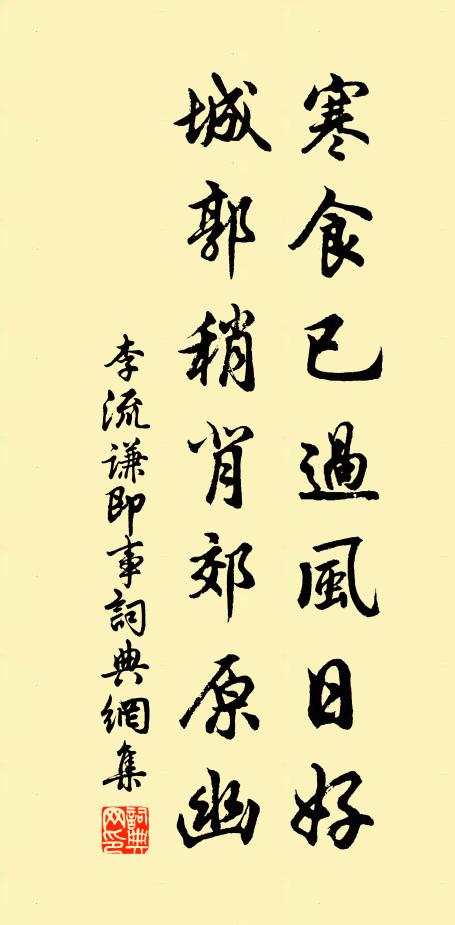 寒食已過風日好
城郭稍背郊原幽
李流謙即事詞典網集
詞典
網印